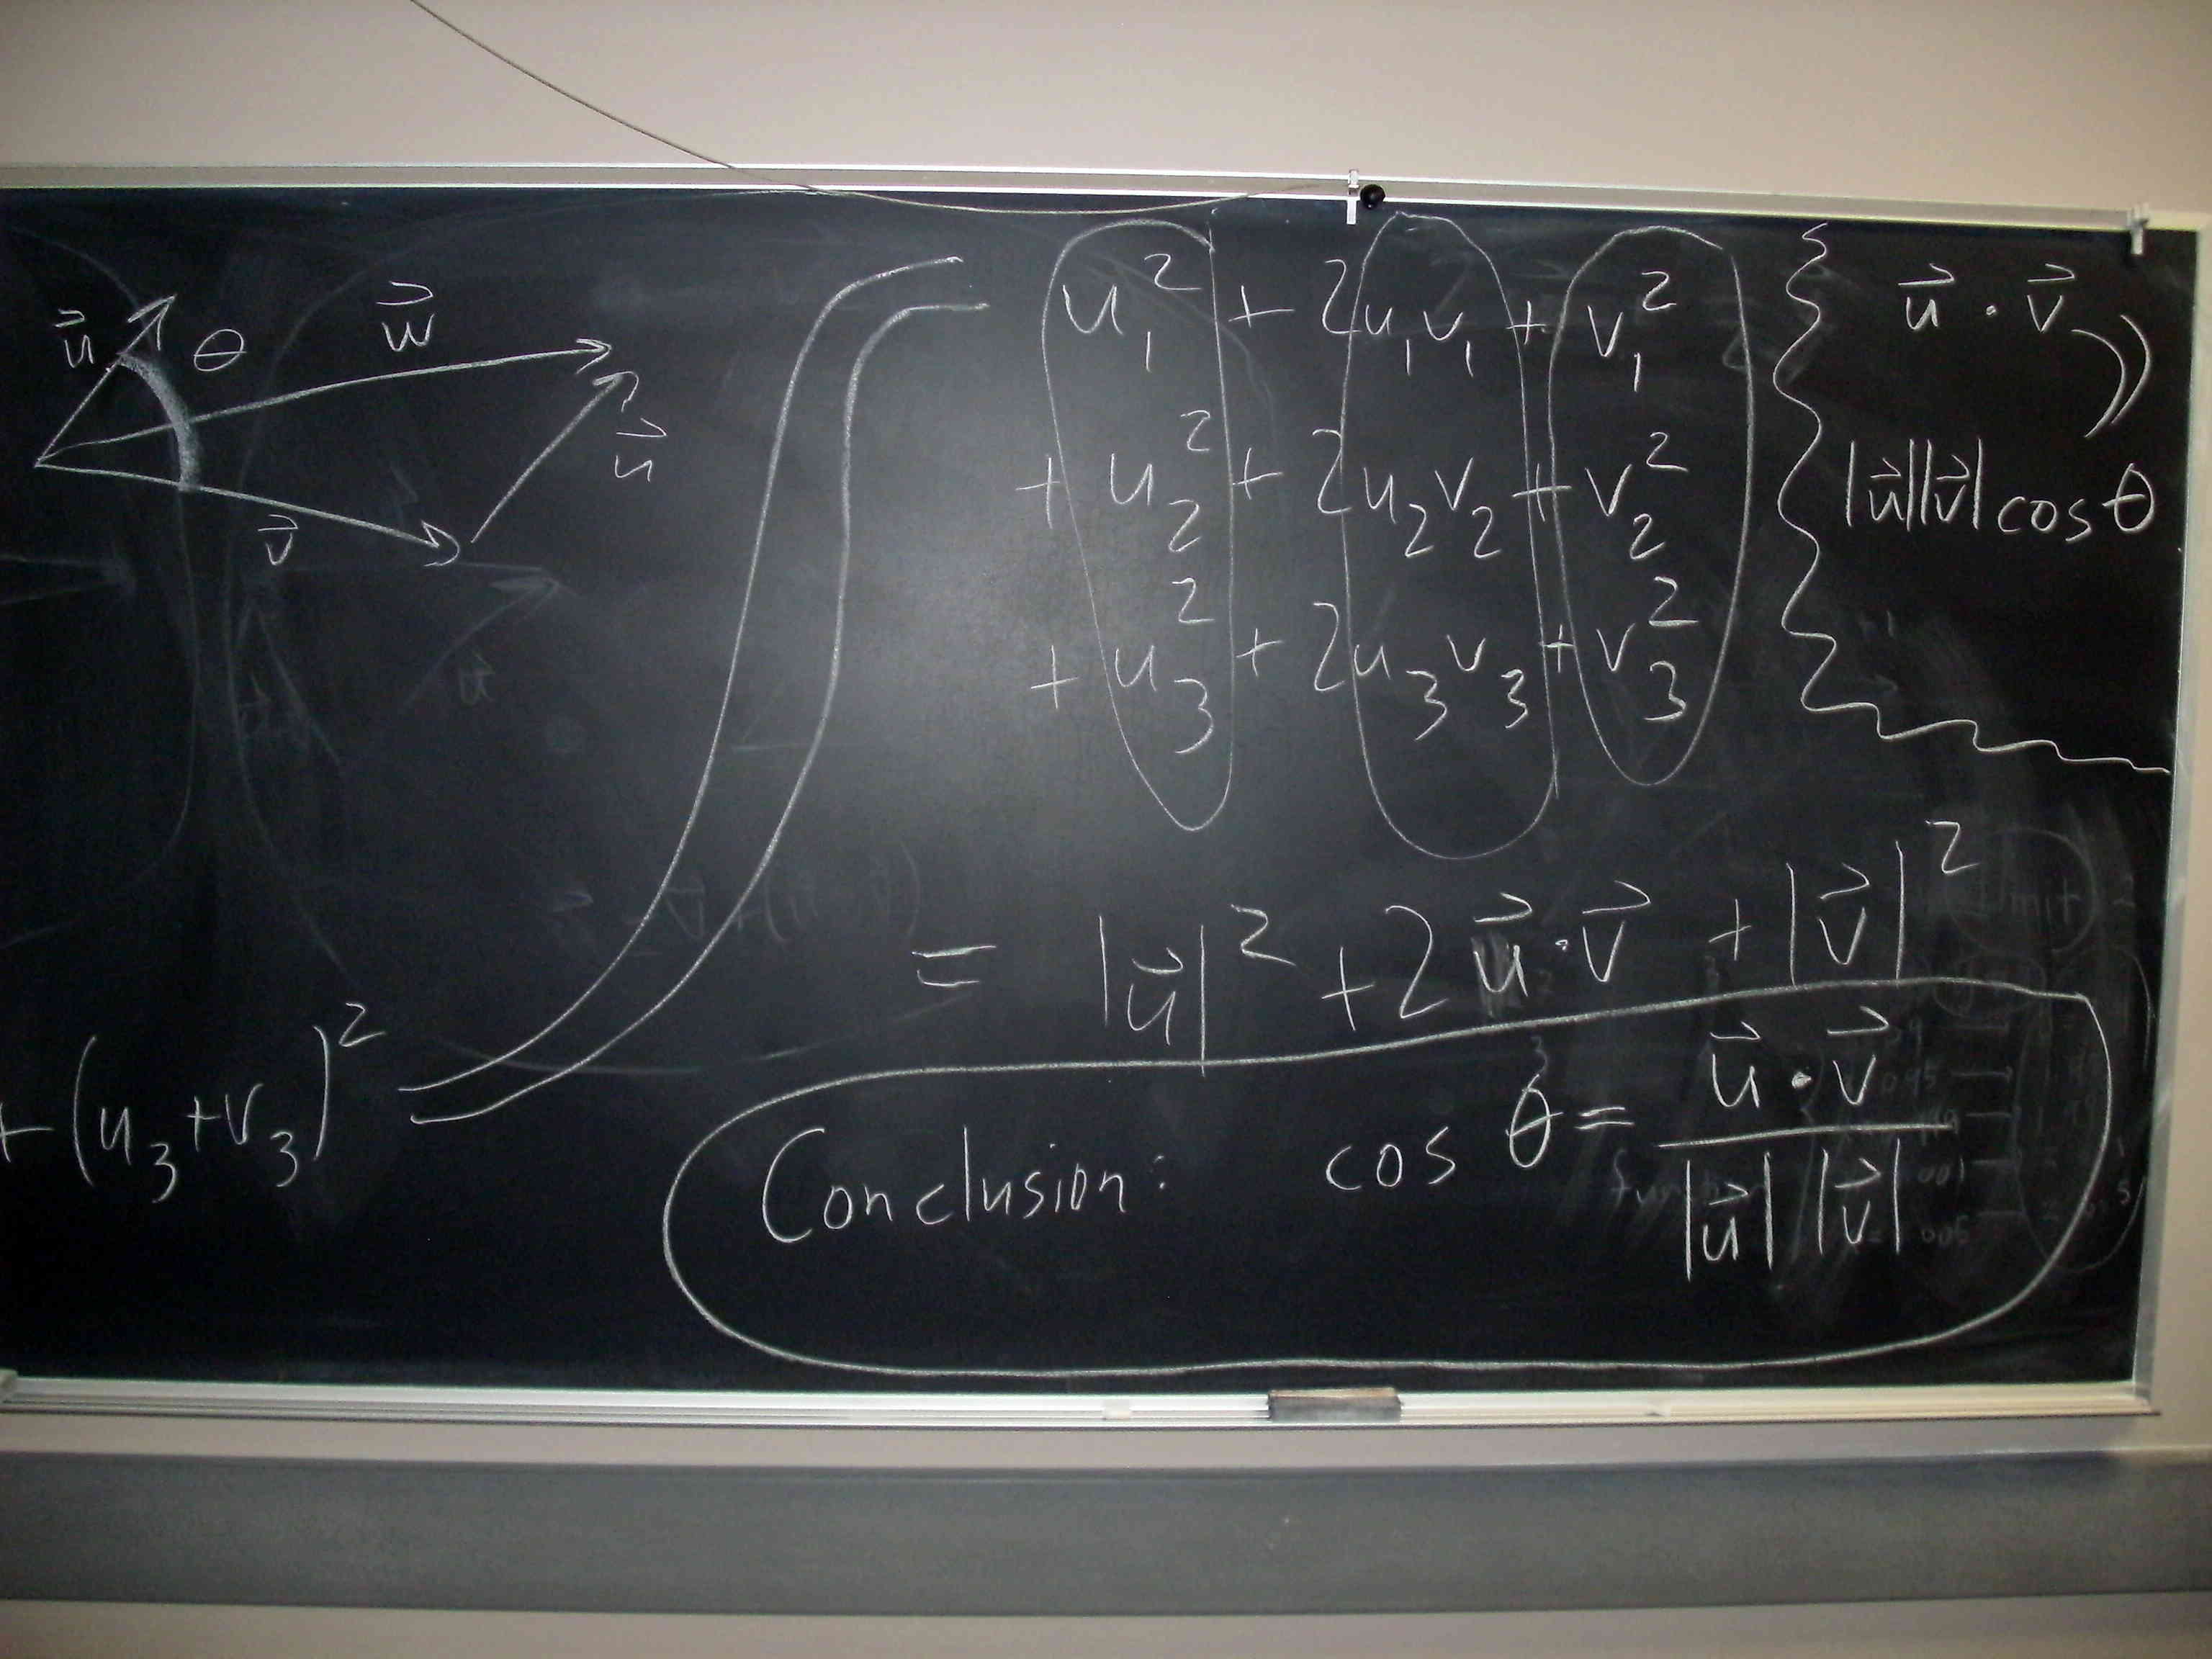 u⃗ θ w⃗
u⃗
v⃗
+ (u₃+v₃)²
u₁² + 2u₁v₁ + v₁²
+ u₂² + 2u₂v₂ + v₂²
+ u₃² + 2u₃v₃ + v₃²
u⃗ · v⃗
=
|u⃗||v⃗| cos θ
= |u⃗|² + 2 u⃗ · v⃗ + |v⃗|²
Conclusion: cos θ = (u⃗ · v⃗) / (|u⃗| |v⃗|)